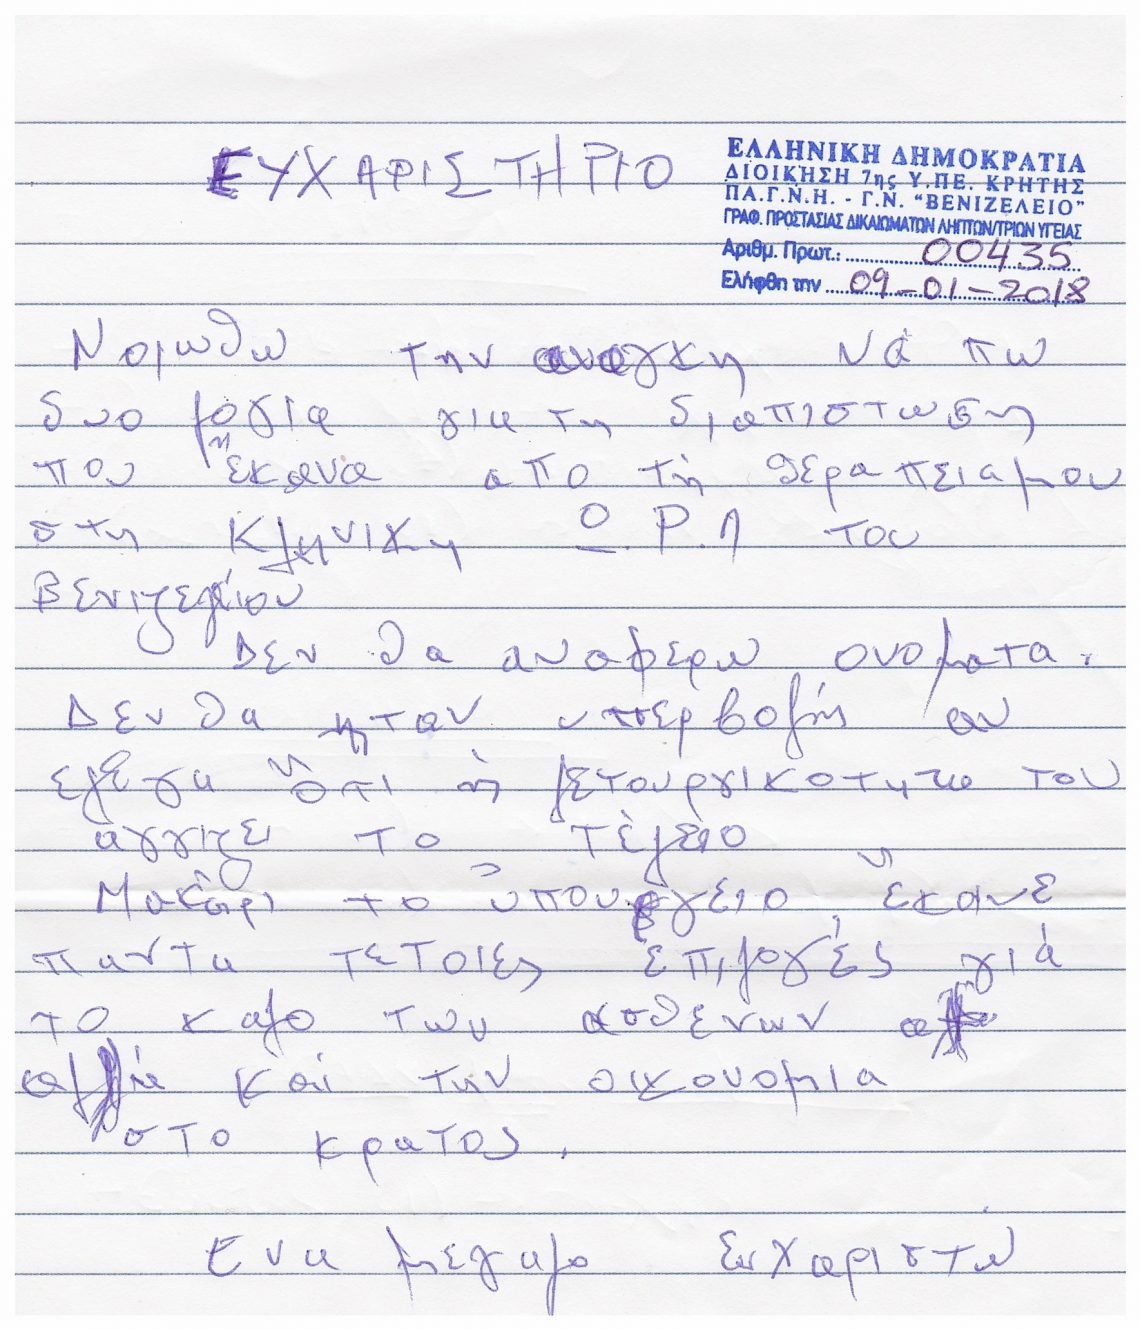 ΕΥΧΑΡΙΣΤΗΡΙΟ
ΕΛΛΗΝΙΚΗ ΔΗΜΟΚΡΑΤΙΑ
ΔΙΟΙΚΗΣΗ 7ης Υ.ΠΕ. ΚΡΗΤΗΣ
ΠΑ.Γ.Ν.Η. - Γ.Ν. "ΒΕΝΙΖΕΛΕΙΟ"
ΓΡΑΦ. ΠΡΟΣΤΑΣΙΑΣ ΔΙΚΑΙΩΜΑΤΩΝ ΛΗΠΤΩΝ/ΤΡΙΩΝ ΥΓΕΙΑΣ
Αριθμ. Πρωτ.: 00435
Ελήφθη την 09-01-2018
Νοιωθω την αναγκη νά πω
δυο λογια για τη διαπιστωση
που έκανα απο τή θεραπεια μου
στη Κλινικη Ο.Ρ.Λ του
Βενιζελείου
Δεν θα αναφερω ονοματα.
Δεν θα ηταν υπερβολής αν
ελεγα ότι ή λετουργικοτητα του
αγγιζει το τέλειο
Μακάρι το υπουργειο έκανε
παντα τετοιες επιλογές γιά
το καλο των ασθενων
αλλά καί την οικονομια
στο κρατος.
Ενα μεγαλο ευχαριστώ